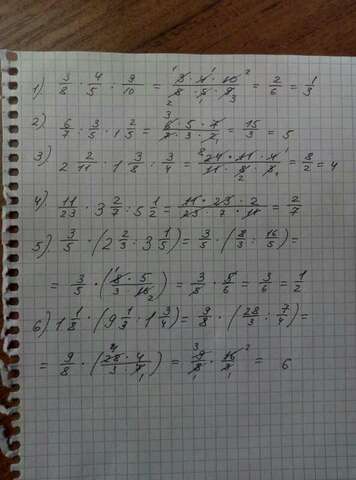 1) 3/8 · 4/5 : 9/10 = (3 · 4 · 10)/(8 · 5 · 9) = 2/6 = 1/3
2) 6/7 : 3/5 · 1 2/5 = (6 · 5 · 7)/(7 · 3 · 5) = 15/3 = 5
3) 2 2/11 · 1 3/8 : 3/4 = (24 · 11 · 4)/(11 · 8 · 3) = 8/2 = 4
4) 11/23 · 3 2/7 : 5 1/2 = (11 · 23 · 2)/(23 · 7 · 11) = 2/7
5) 3/5 · (2 2/3 : 3 1/5) = 3/5 · (8/3 : 16/5) =
= 3/5 · (8 · 5)/(3 · 16) = 3/5 · 5/6 = 3/6 = 1/2
6) 1 1/8 · (9 1/3 : 1 3/4) = 9/8 · (28/3 : 7/4) =
= 9/8 · (28 · 4)/(3 · 7) = 9/8 · 16/3 = 6